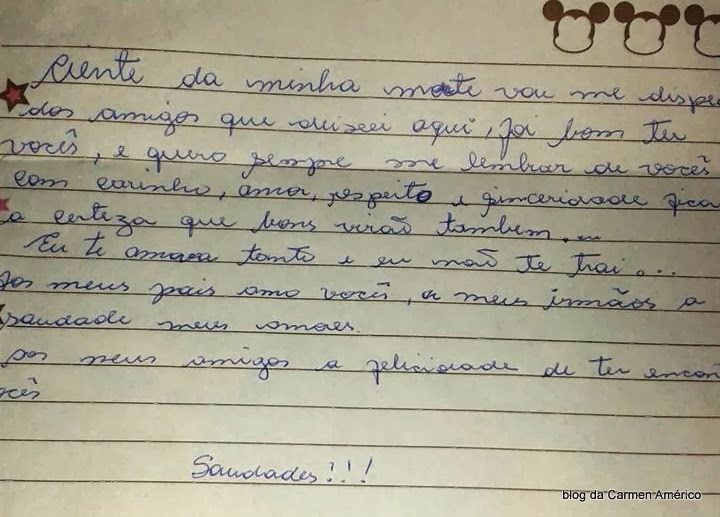 Ciente da minha morte vou me dispe
dos amigos que deixei aqui, foi bom ter
vocês, e quero sempre me lembrar de vocês
com carinho, amor, respeito e sinceridade fica
a certeza que bons virão tambem...
Eu te amava tanto e eu não te trai...
Aos meus pais amo vocês, a meus irmãos a
saudade meus amores.
Aos meus amigos a felicidade de ter encon
ocês
Saudades!!!
blog da Carmen Américo